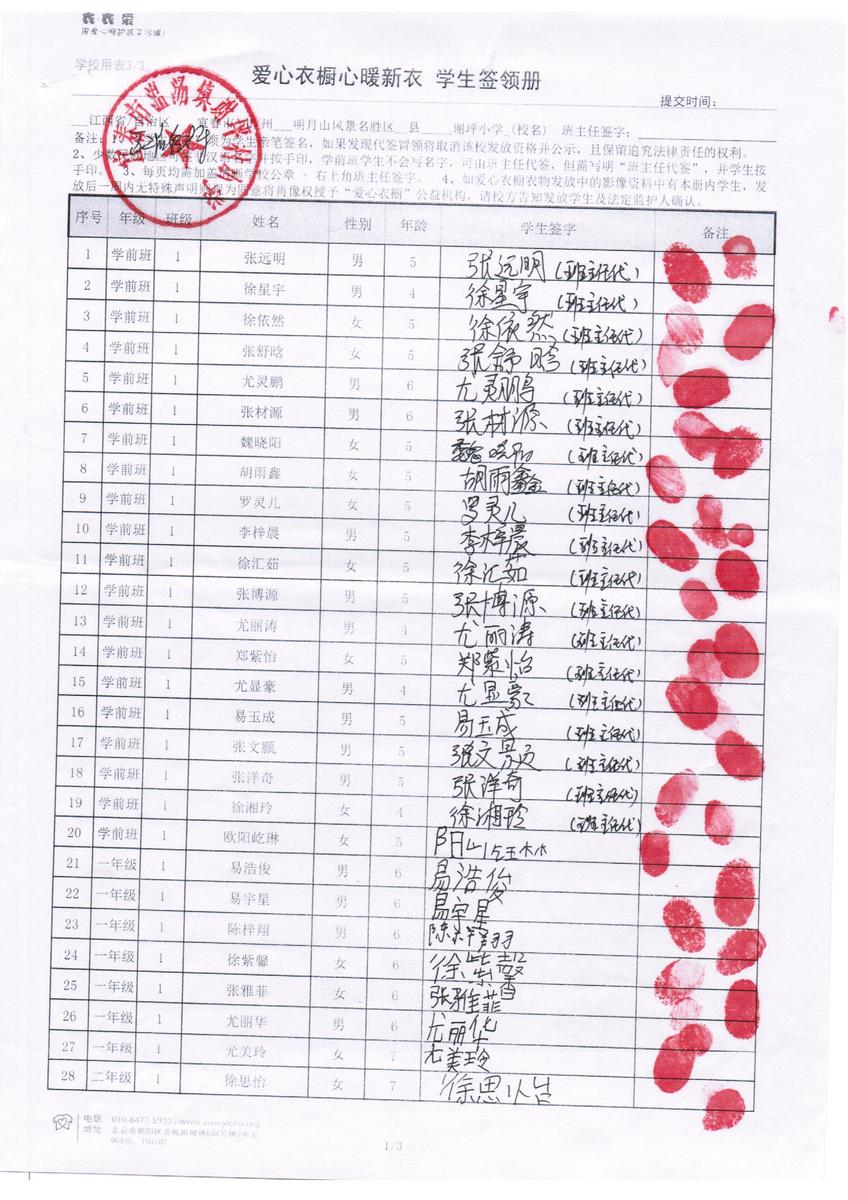 衣·衣·爱
用爱心呵护孩子冷暖!
学校用表3/3
爱心衣橱心暖新衣 学生签领册
提交时间:
江西省/自治区 宜春市 州 明月山风景名胜区 县 谢坪小学 (校名) 班主任签字:
备注:1 须为学生亲笔签名,如果发现代签冒领将取消该校发放资格并公示,且保留追究法律责任的权利。
2、少数 地 并按手印,学前班学生不会写名字,可由班主任代签,但需写明“班主任代签”,并学生按
手印。 3、每页均需加盖 学校公章,右上角班主任签字。 4、如爱心衣橱衣物发放中的影像资料中有本册内学生,发
放后一周内无特殊声明则视为同意将肖像权授予“爱心衣橱”公益机构,请校方告知发放学生及法定监护人确认。
序号 年级 班级 姓名 性别 年龄 学生签字 备注
1 学前班 1 张远明 男 5 张远明 (班主任代)
2 学前班 1 徐星宇 男 4 徐星宇 (班主任代)
3 学前班 1 徐依然 女 5 徐依然 (班主任代)
4 学前班 1 张舒晗 女 5 张舒 (班主任代)
5 学前班 1 尤灵鹏 男 6 尤灵鹏 (班主任代)
6 学前班 1 张材源 男 6 张材源 (班主任代)
7 学前班 1 魏晓阳 女 5 魏晓阳 (班主任代)
8 学前班 1 胡雨鑫 女 5 胡雨鑫 (班主任代)
9 学前班 1 罗灵儿 女 5 罗灵儿 (班主任代)
10 学前班 1 李梓晨 男 5 李梓晨 (班主任代)
11 学前班 1 徐汇茹 女 5 徐汇茹 (班主任代)
12 学前班 1 张博源 男 5 张博源 (班主任代)
13 学前班 1 尤丽涛 男 4 尤丽涛 (班主任代)
14 学前班 1 郑紫怡 女 5 郑紫怡 (班主任代)
15 学前班 1 尤显豪 男 4 尤显豪 (班主任代)
16 学前班 1 易玉成 男 5 易玉成 (班主任代)
17 学前班 1 张文颢 男 5 张文 (班主任代)
18 学前班 1 张洋奇 男 5 张洋奇 (班主任代)
19 学前班 1 徐湘玲 女 4 徐湘玲 (班主任代)
20 学前班 1 欧阳屹琳 女 5 阳屹琳
21 一年级 1 易浩俊 男 6 易浩俊
22 一年级 1 易宇星 男 6 易宇星
23 一年级 1 陈梓翔 男 6 陈梓翔
24 一年级 1 徐紫馨 女 6 徐紫馨
25 一年级 1 张雅菲 女 6 张雅菲
26 一年级 1 尤丽华 男 6 尤丽华
27 一年级 1 尤美玲 女 7 尤美玲
28 二年级 1 徐思怡 女 7 徐思怡
电话:010-8477-5910 | www.aixinyichu.org
地址:北京市朝阳区北苑
1/3